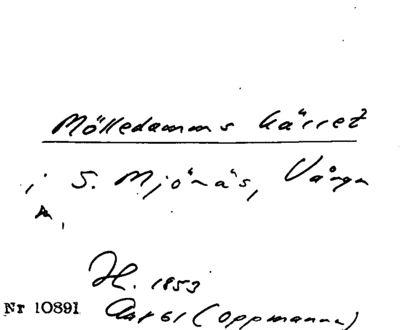 Mölledamms kärret
i S. Mjönäs, Vånga
H. 1853
Nr 10891 Akt 61 (Oppmanna)